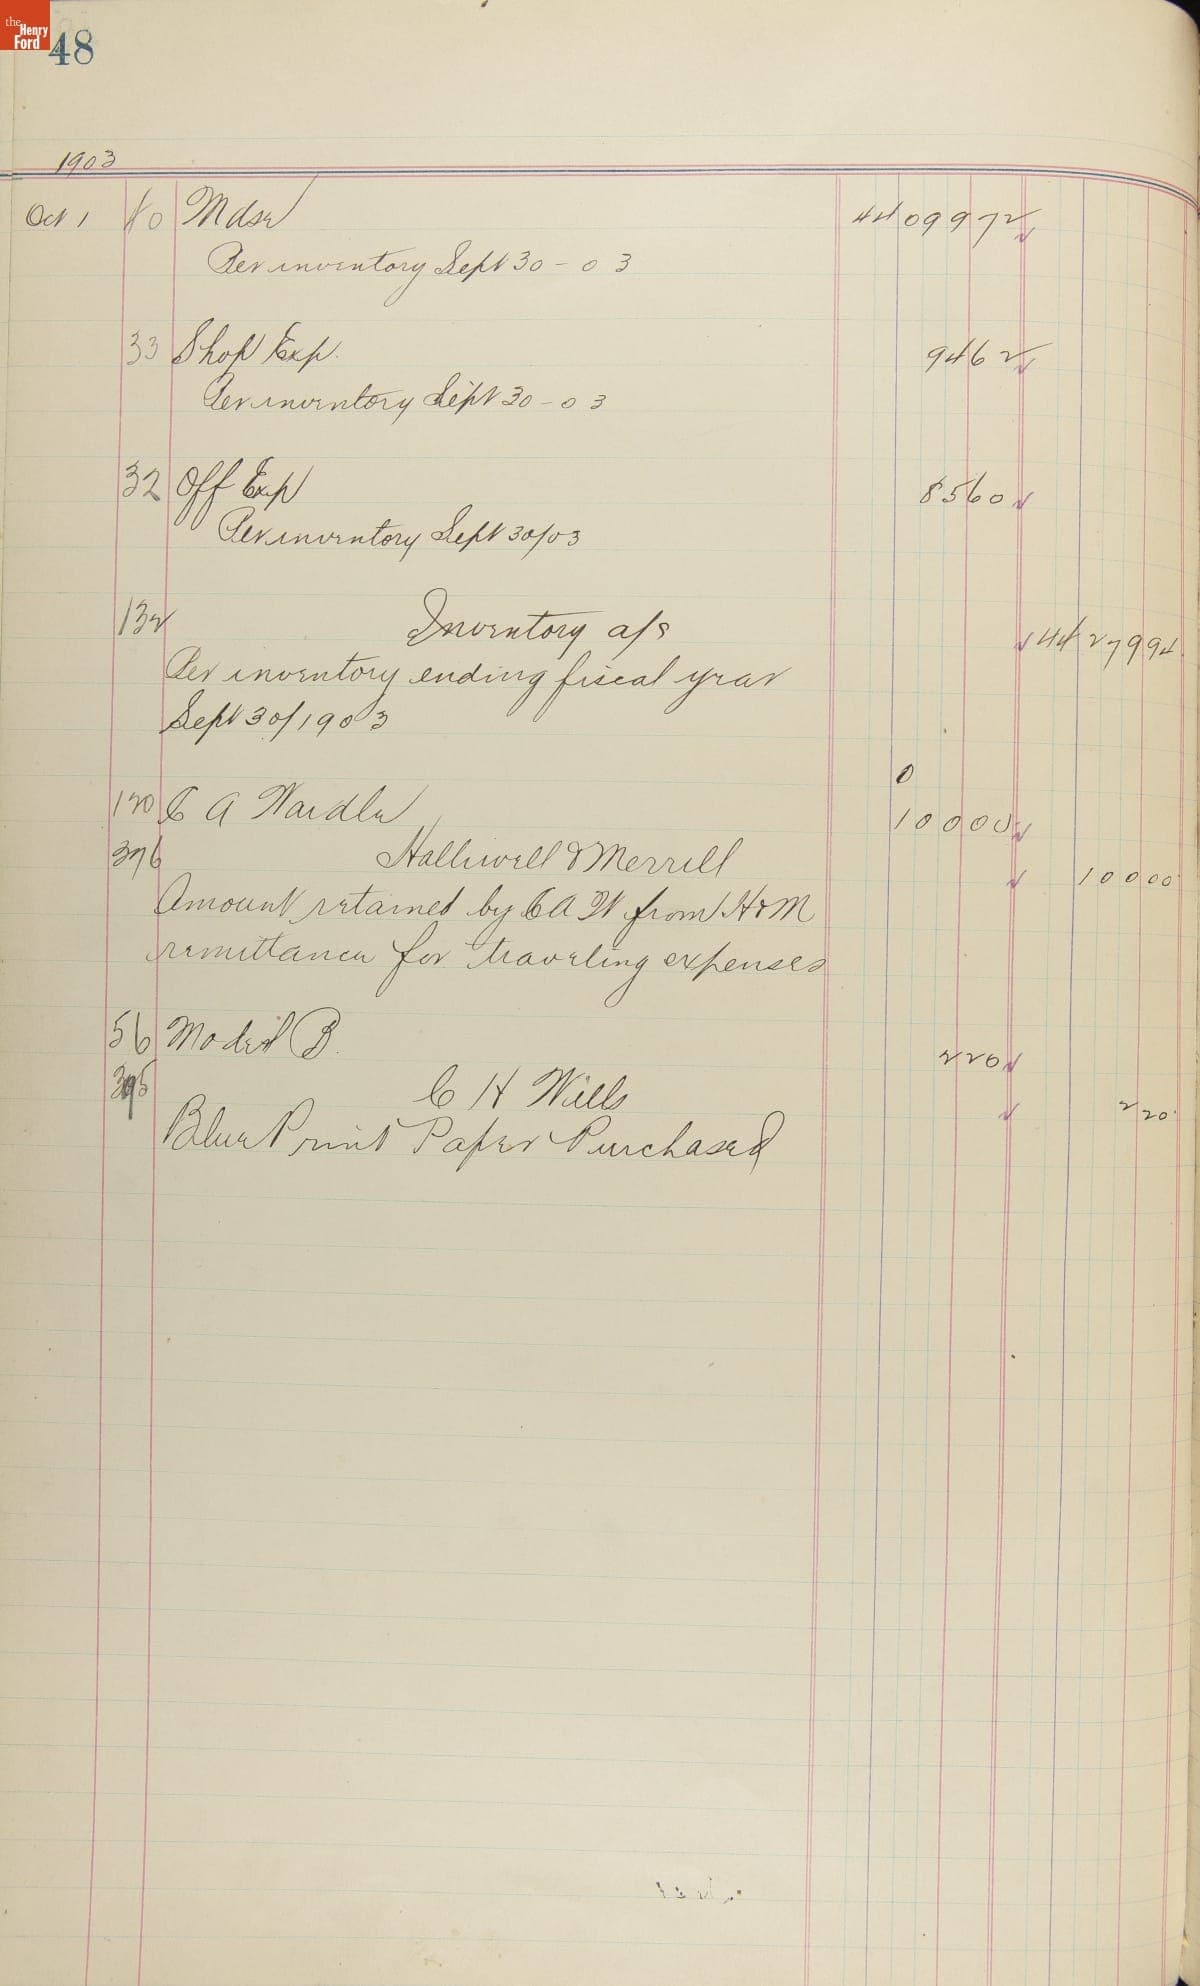 the Henry Ford
48
1903
Oct 1 40 Mdse 44 099 72
Per inventory Sept 30 - 03
33 Shop Exp. 94 62
Per inventory Sept 30 - 03
32 Off Exp 85 60
Per inventory Sept 30/03
132 Inventory a/c 44 279 94
Per inventory ending fiscal year
Sept 30/1903
0
120 C A Wardle 100 00
376 Halliwell & Merrill 100 00
Amount retained by C A W from H & M
remittance for traveling expenses
56 Model B. 2 20
C H Wills 2 20
Blue Print Paper Purchased